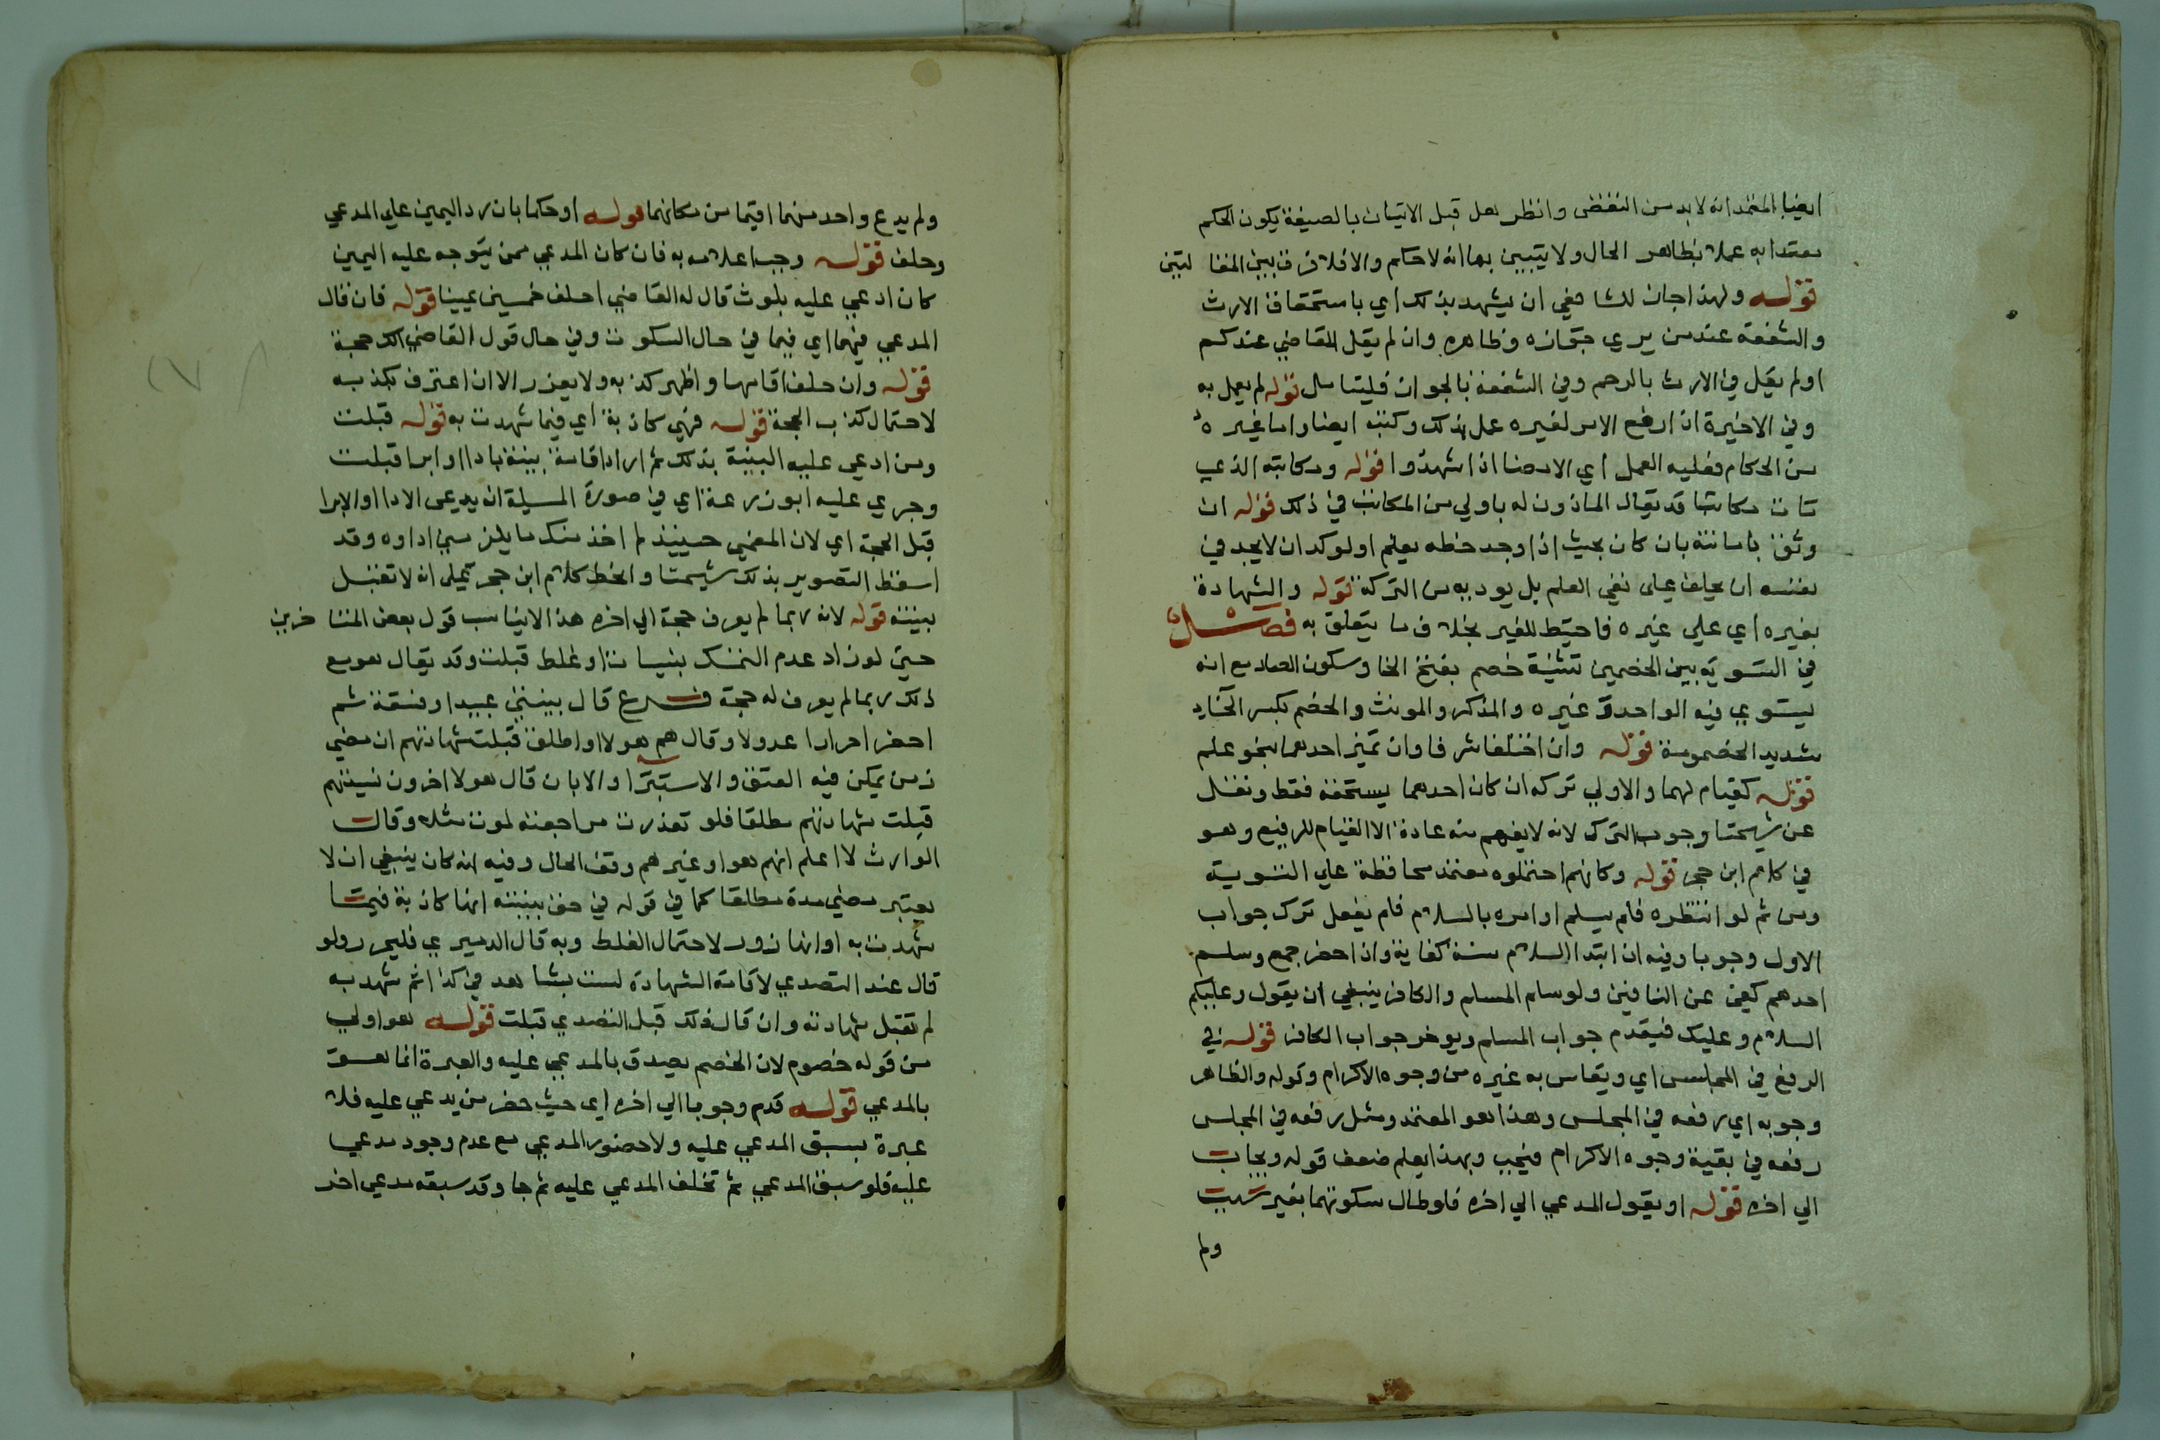 ايضا المعتمد انه لابد من النقض وانظر هل قبل الاتيان بالصيغة يكون الحكم
معتدا به عملا بظاهر الحال ولا يتبين بها انه لا حكم والا فلا فرق بين المقا لتين
قوله ولهذا جاز للشافعي ان يشهد بذلك اي باستحقاق الارث
والشفعة عند من يري جوازه وظاهره وان لم يقل للقاضي عندكم
اولم يقل في الارث بالرحم وفي الشفعة بالجوار فليتامل قوله لم يعمل به
وفي الاخيرة اذا رفع الامر لغيره عمل بذلك وكتبه ايضا واما غيره
من الحكام فعليه العمل اي الامضا اذا شهدوا قوله ومكاتبه الذي
مات مكاتبا قد يقال الماذون له باولي من المكاتب في ذلك قوله ان
وثق بامانته بان كان بحيث اذا وجد خطه بعلم اولوكد ان لا يجد في
نفسه ان يحلف علي نفي العلم بل يود به من التركة قوله والشهادة
بغيره اي علي غيره فاحتيط للغير بخلاف ما يتعلق به فصل
في التسوية بين الخصمين تثنية خصم بفتح الخا وسكون الصاد مع انه
يستوي فيه الواحد وغيره والمذكر والمونث والخصم بكسر الصاد
شديد الخصومة قوله وان اختلفا شرفا وان تميز احدهما بنحو علم
قوله كقيام لهما والاولي تركه ان كان احدهما يستحقه فقط ونقل
عن شيخنا وجوب الترك لانه لا يفهم منه عادة الا القيام للرفيع وهو
في كلام ابن حجر قوله وكانهم احتملوه معتمد محافظة علي التسوية
ومن ثم لو انتظره فلم يسلم او امره بالسلام فلم يفعل ترك جواب
الاول وجوبا وفيه ان ابتدا السلام سنة كفاية واذا حضر جمع وسلم
احدهم كفي عن الباقين ولو سلم المسلم والكافر ينبغي ان يقول وعليكم
السلام وعليك فيقدم جواب المسلم ويوخر جواب الكافر قوله في
الرفع في المجلس اي ويقاس به غيره من وجوه الاكرام وقوله والظاهر
وجوبه اي رفعه في المجلس وهذا هو المعتمد ومثل رفعه في المجلس
رفعه في بقية وجوه الاكرام فيجب وبهذا يعلم ضعف قوله ويجاب
الي اخره قوله او يقول المدعي الي اخره فلو طال سكوتهما بغير سبب
ولم
ولم يدع واحد منهما اقيما من مكانهما قوله او حكما بان رد اليمين علي المدعي
وحلف قوله وجب اعلامه به فان كان المدعي ممن يتوجه عليه اليمين
كان ادعي عليه بلوث قال له القاضي احلف خمسين يمينا قوله فان قال
المدعي فيهما اي فيما في حال السكوت وفي حال قول القاضي الك حجة
قوله وان حلف اقامها واظهر كذبه ولا يعزر الا ان اعترف بكذبه
لاحتمال كذب الحجة قوله فهي كاذبة اي فيما شهدت به قوله قبلت
ومن ادعي عليه البينة بذلك ثم اراد اقامة بينة باداا وابرا قبلت
وجري عليه ابوزرعة اي في صورة المسيلة ان يدعي الادا او الابرا
قبل الحجة اي لان المعني حينيذ لم اخذ منك ما يلزمني اداوه وقد
اسقط التصوير بذلك شيخنا والخط كلام ابن حجر يميل انه لا تقبل
بينته قوله لانه ربما لم يعرف حجة الي اخره هذا لا يناسب قول بعض المتا خرين
حتي لو زاد عدم التمسك بنسيان او غلط قبلت وقد يقال هو مع
ذلك ربما لم يعرف له حجة فرع قال بينتي عبيد او فسقة ثم
احضر احرارا عدولا وقال هم هولا او اطلق قبلت شهادتهم ان مضي
زمن يمكن فيه العتق والاستبرا والا بان قال هولا اخرون نسيتهم
قبلت شهادتهم مطلقا فلو تعذرت مراجعته لموت مثلا وقال
الوارث لا اعلم انهم هو او غيرهم وقف الحال وفيه انه كان ينبغي ان لا
يعتبر مضي مدة مطلقا كما في قوله في حق بينته انها كاذبة فيما
شهدت به او انها زور لاحتمال الغلط وبه قال الدميري فليحرر ولو
قال عند التصدي لاقامة الشهادة لست بشاهد في كذا ثم شهد به
لم تقبل شهادته وان قال ذلك قبل التصدي قبلت قوله هو اولي
من قوله خصوم لان الخصم يصدق بالمدعي عليه والعبرة انما هو
بالمدعي قوله قدم وجوبا الي اخره اي حيث حضر من يدعي عليه فلا
عبرة بسبق المدعي عليه ولا حضور المدعي مع عدم وجود مدعي
عليه فلو سبق المدعي ثم تخلف المدعي عليه ثم جا وقد سبقه مدعي اخر